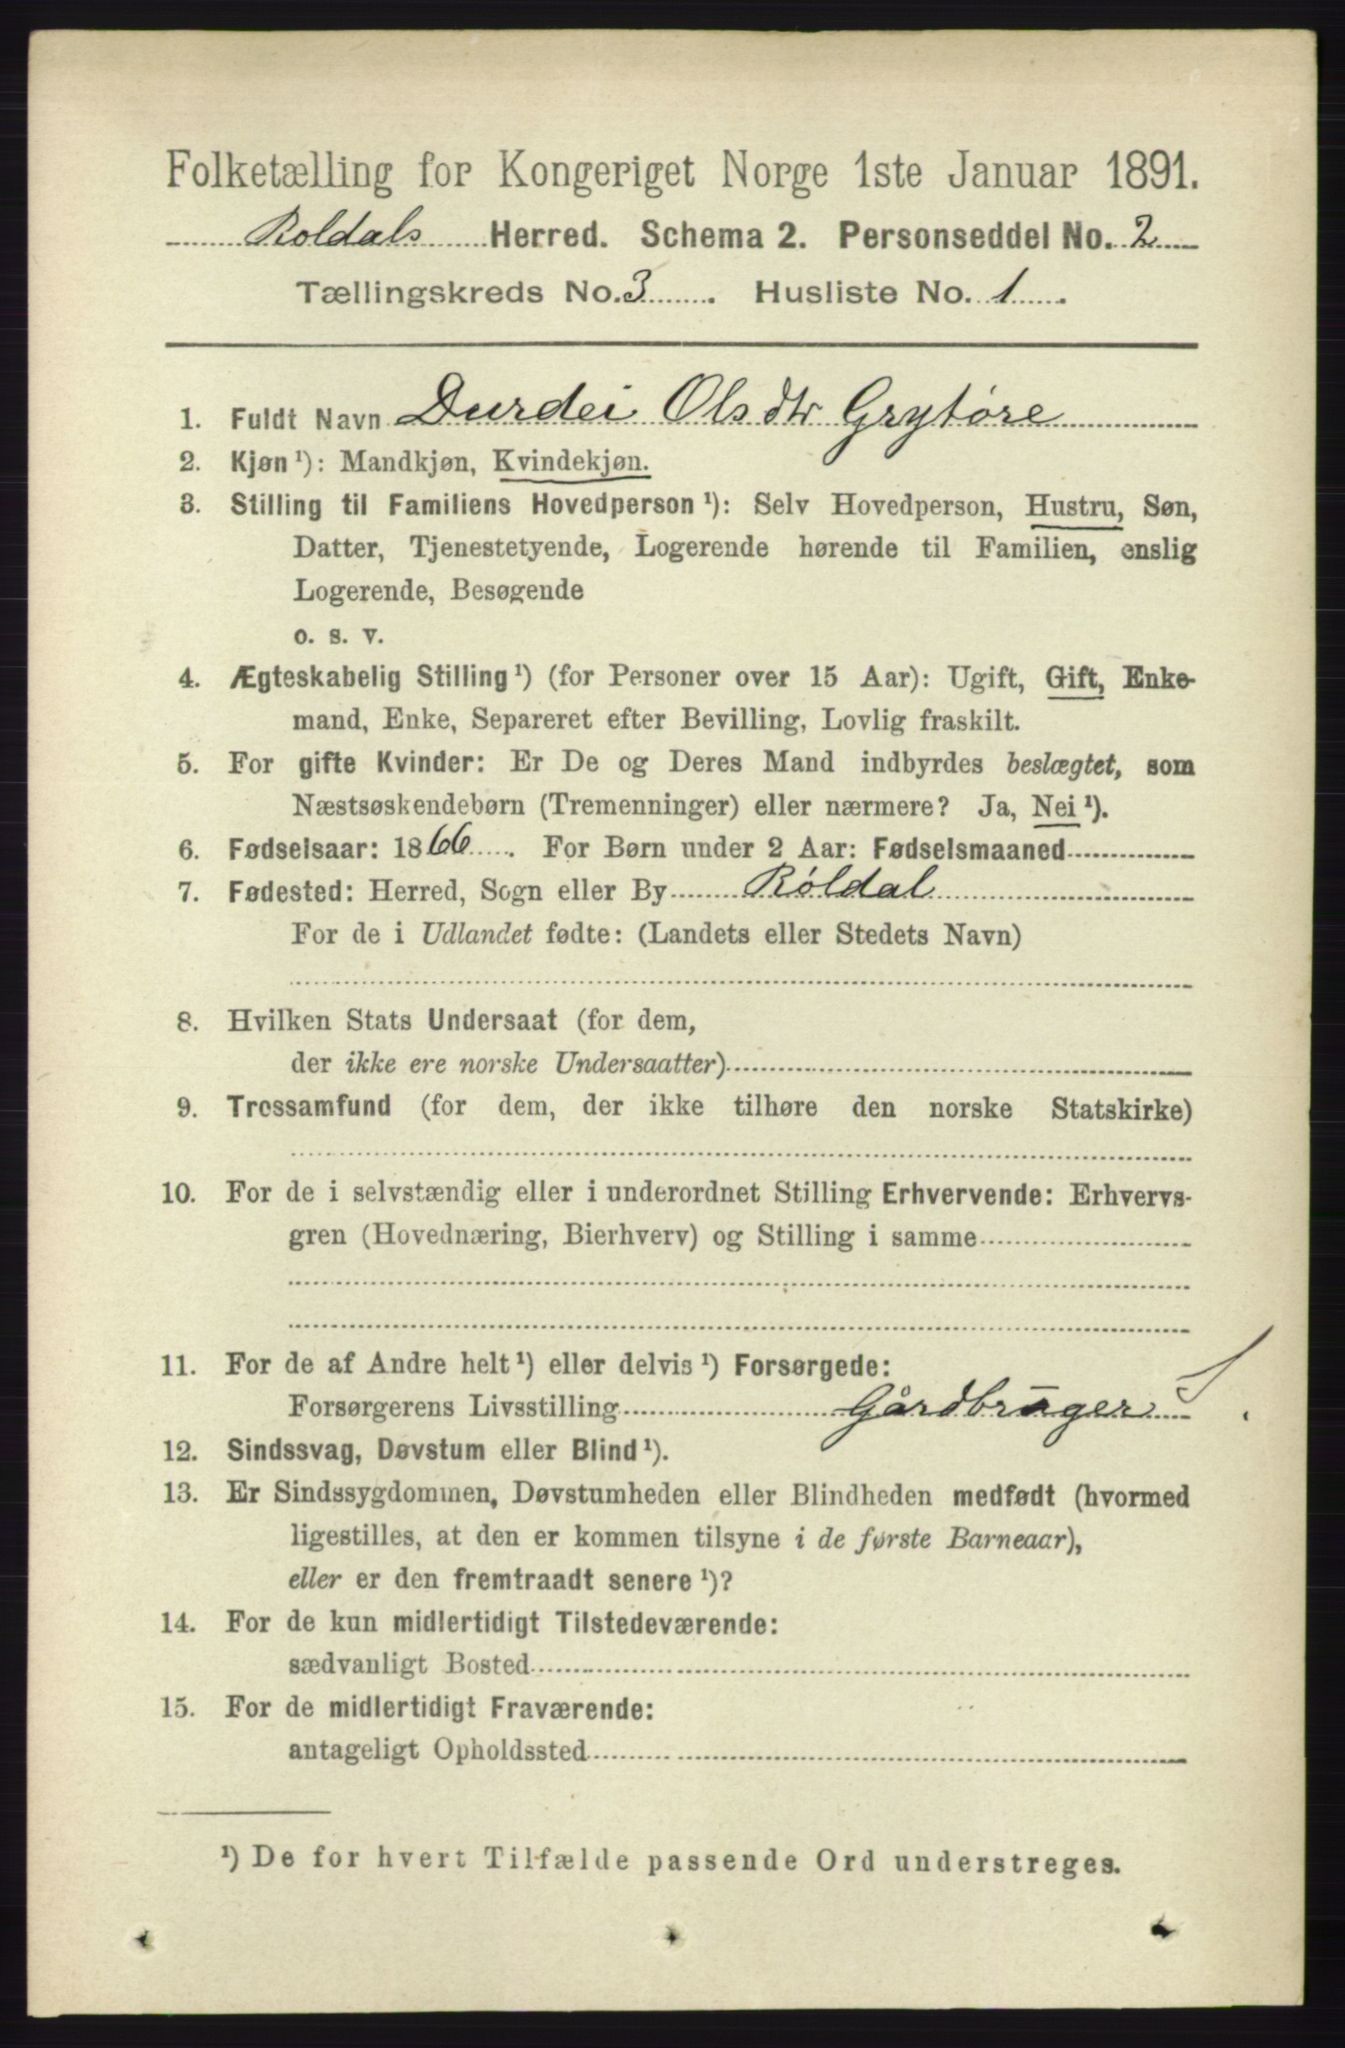 Folketælling for Kongeriget Norge 1ste Januar 1891.
Roldals Herred. Schema 2. Personseddel No. 2
Tællingskreds No. 3. Husliste No. 1.
1. Fuldt Navn Durdei Olsdtr Grytøre
2. Kjøn¹): Mandkjøn, Kvindekjøn.
3. Stilling til Familiens Hovedperson¹): Selv Hovedperson, Hustru, Søn,
Datter, Tjenestetyende, Logerende hørende til Familien, enslig
Logerende, Besøgende
o. s. v.
4. Ægteskabelig Stilling¹) (for Personer over 15 Aar): Ugift, Gift, Enke-
mand, Enke, Separeret efter Bevilling, Lovlig fraskilt.
5. For gifte Kvinder: Er De og Deres Mand indbyrdes beslægtet, som
Næstsøskendebørn (Tremenninger) eller nærmere? Ja, Nei¹).
6. Fødselsaar: 1866. For Børn under 2 Aar: Fødselsmaaned
7. Fødested: Herred, Sogn eller By Röldal
For de i Udlandet fødte: (Landets eller Stedets Navn)
8. Hvilken Stats Undersaat (for dem,
der ikke ere norske Undersaatter)
9. Trossamfund (for dem, der ikke tilhøre den norske Statskirke)
10. For de i selvstændig eller i underordnet Stilling Erhvervende: Erhvervs-
gren (Hovednæring, Bierhverv) og Stilling i samme
11. For de af Andre helt¹) eller delvis¹) Forsørgede:
Forsørgerens Livsstilling Gårdbruger
12. Sindssvag, Døvstum eller Blind¹).
13. Er Sindssygdommen, Døvstumheden eller Blindheden medfødt (hvormed
ligestilles, at den er kommen tilsyne i de første Barneaar),
eller er den fremtraadt senere¹)?
14. For de kun midlertidigt Tilstedeværende:
sædvanligt Bosted
15. For de midlertidigt Fraværende:
antageligt Opholdssted
¹) De for hvert Tilfælde passende Ord understreges.